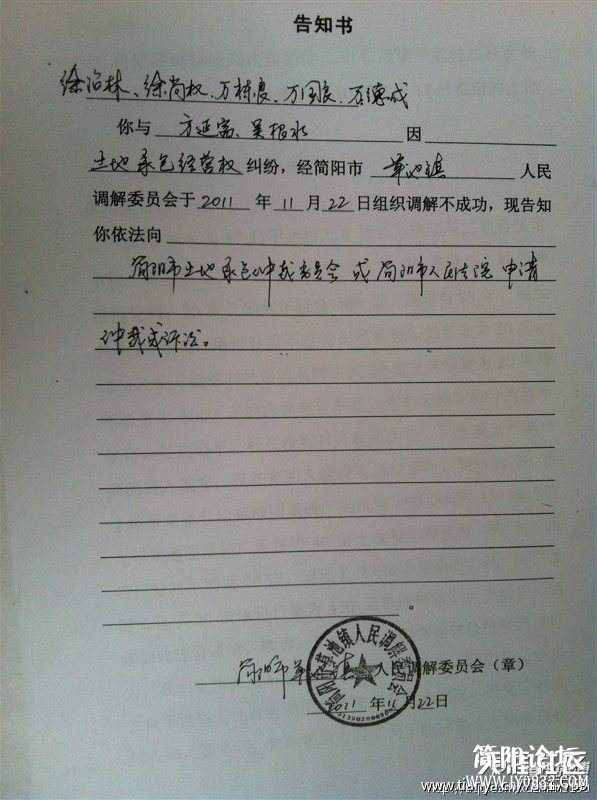 告知书
徐治林、徐尚权、万栋良、万国良、万德成
你与 方延富、吴根水 因
土地承包经营权纠纷，经简阳市 草池镇 人民
调解委员会于2011年11月22日组织调解不成功，现告知
你依法向
简阳市土地承包仲裁委员会 或 简阳市人民法院 申请
仲裁或诉讼。
。
简阳市草池镇人民调解委员会
简阳市草 镇 人民调解委员会（章）
2011年11月22日
简阳论坛
www.JY0832.com